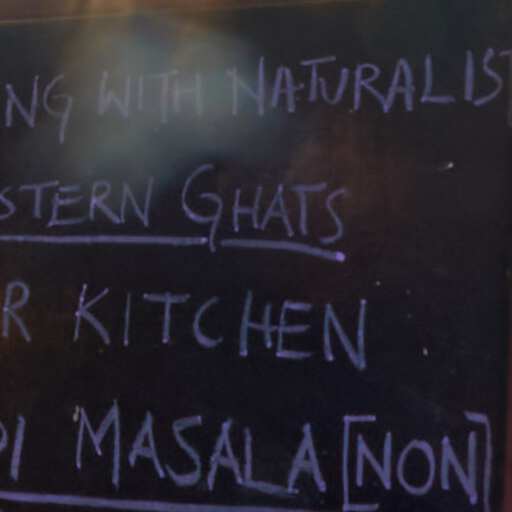 NG WITH NATURALIST
STERN GHATS
R KITCHEN
DI MASALA [NON]